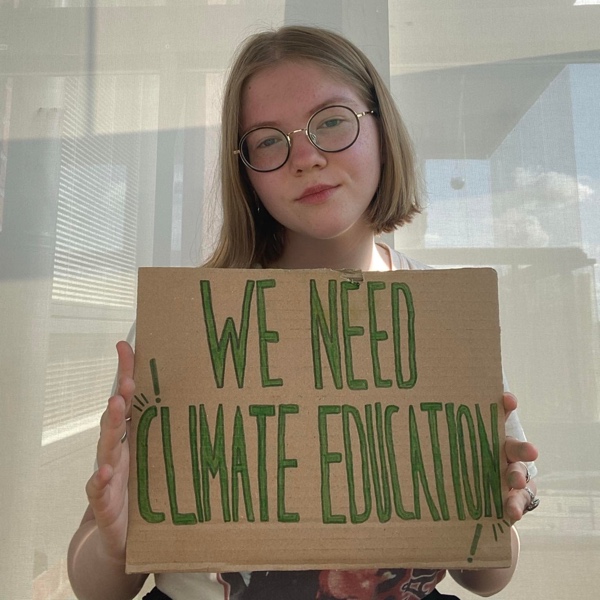 WE NEED
CLIMATE EDUCATION